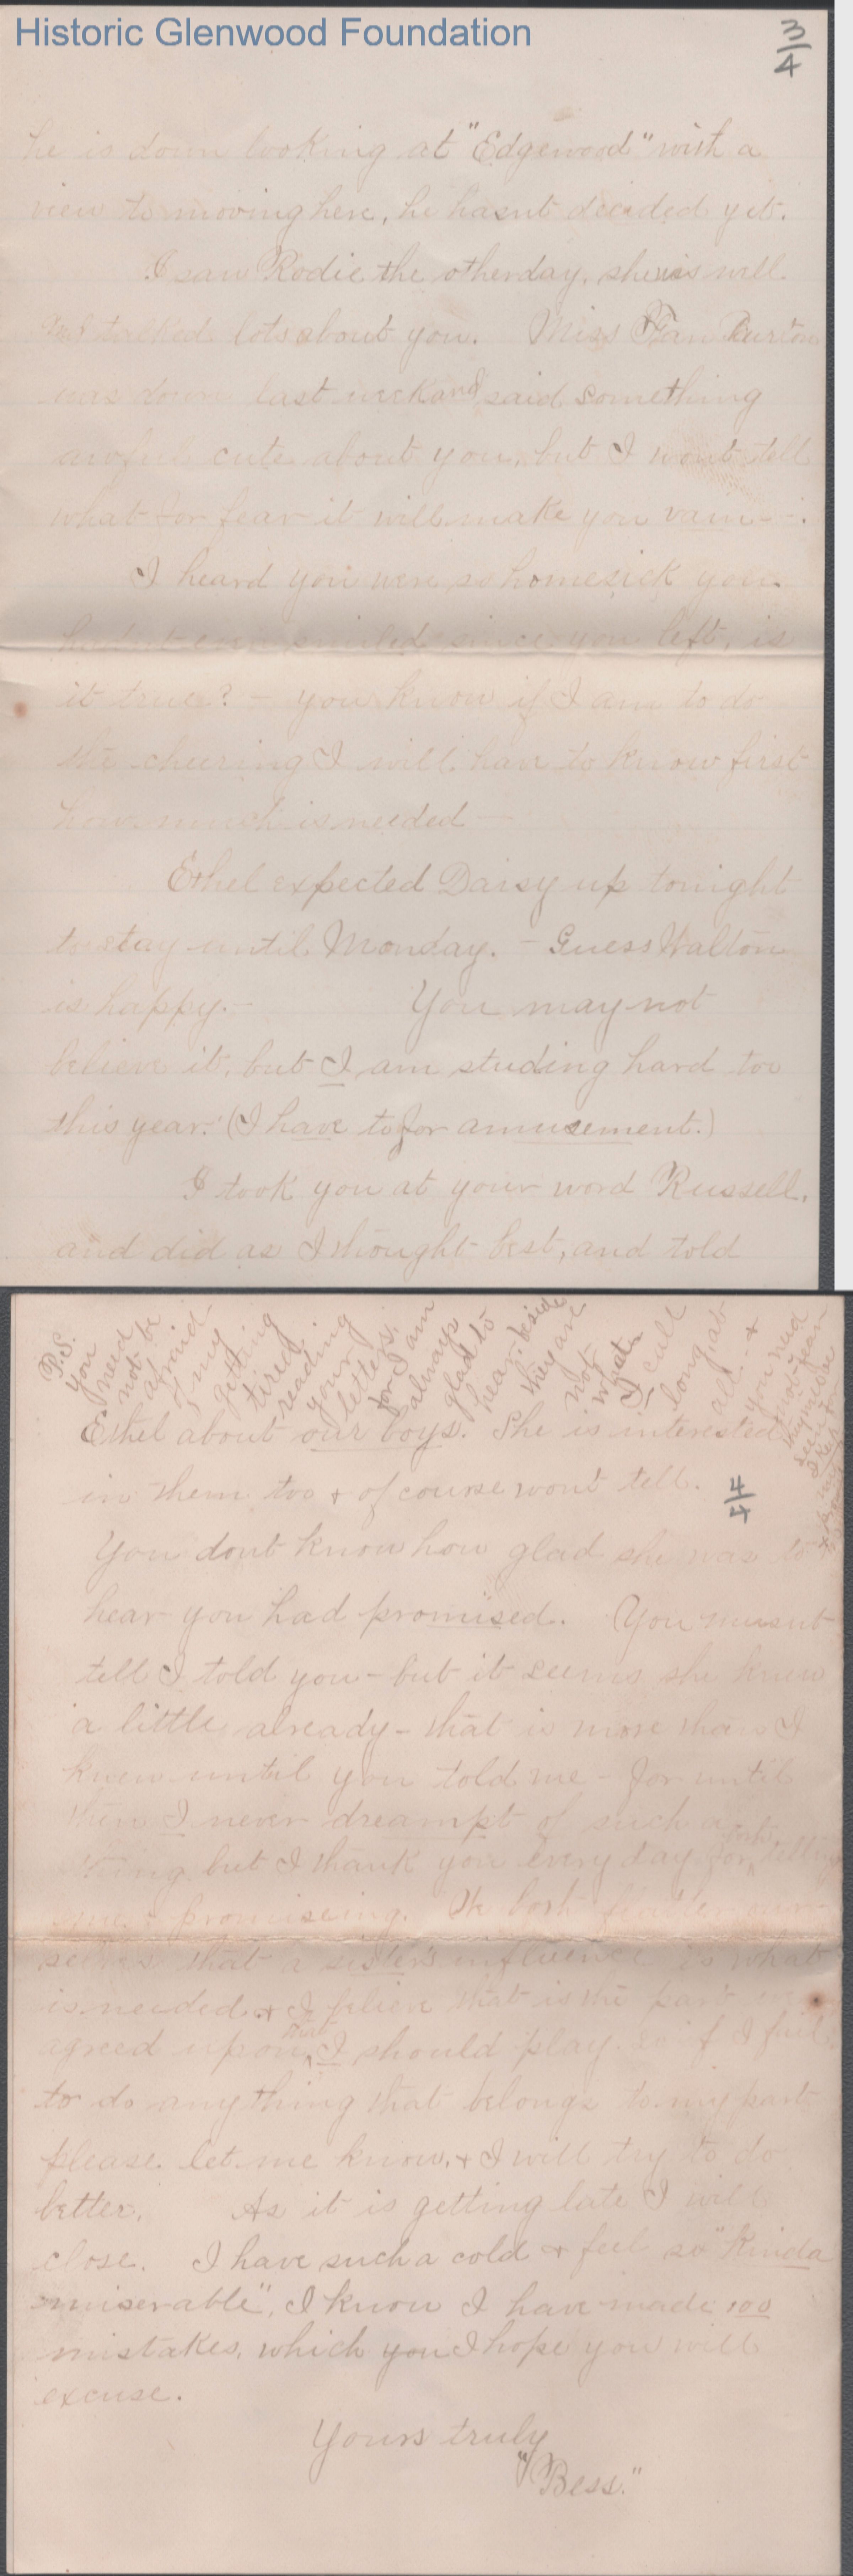 Historic Glenwood Foundation
3/4
he is down looking at "Edgewood" with a
view to moving here, he hasnt decided yet.
I saw Rodie the other day, she is well.
We talked lots about you. Miss Fan Purton
was down last week and said something
awful cute about you, but I wont tell
what for fear it will make you vain -.
I heard you were so homesick you
hadnt even smiled since you left, is
it true? - you know if I am to do
the cheering I will have to know first
how much is needed -
Ethel expected Daisy up tonight
to stay until Monday. - Guess Walton
is happy. - You may not
believe it, but I am studing hard too
this year. (I have to for amusement.)
I took you at your word Russell,
and did as I thought best, and told
P.S. You need not be afraid of my getting tired reading your letters, for I am always glad to hear. beside they are not what I call long at all. + you need not fear
Ethel about our boys. She is interested
in them too + of course wont tell.
4/4
You dont know how glad she was to
hear you had promised. You musnt
tell I told you - but it seems she knew
a little already - that is more than I
knew until you told me - for until
then I never dreampt of such a
thing but I thank you every day for both telling
me + promiseing. We both flatter our-
selves that a sister's influence is what
is needed + I believe that is the part we
agreed upon that I should play. so if I fail
to do anything that belongs to my part
please let me know, + I will try to do
better. As it is getting late I will
close. I have such a cold + feel so "Kinda
miserable", I know I have made 100
mistakes, which you I hope you will
excuse.
Yours truly
"Bess."